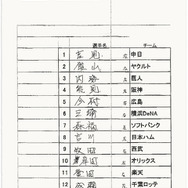 選手名 チーム
1 中日
2 ヤクルト
3 内海 巨人
4 能見 阪神
5 今村 広島
6 三浦 横浜DeNA
7 森福 ソフトバンク
8 吉川 日本ハム
9 牧田 西武
10 オリックス
11 釜田 楽天
12 成瀬 千葉ロッテ